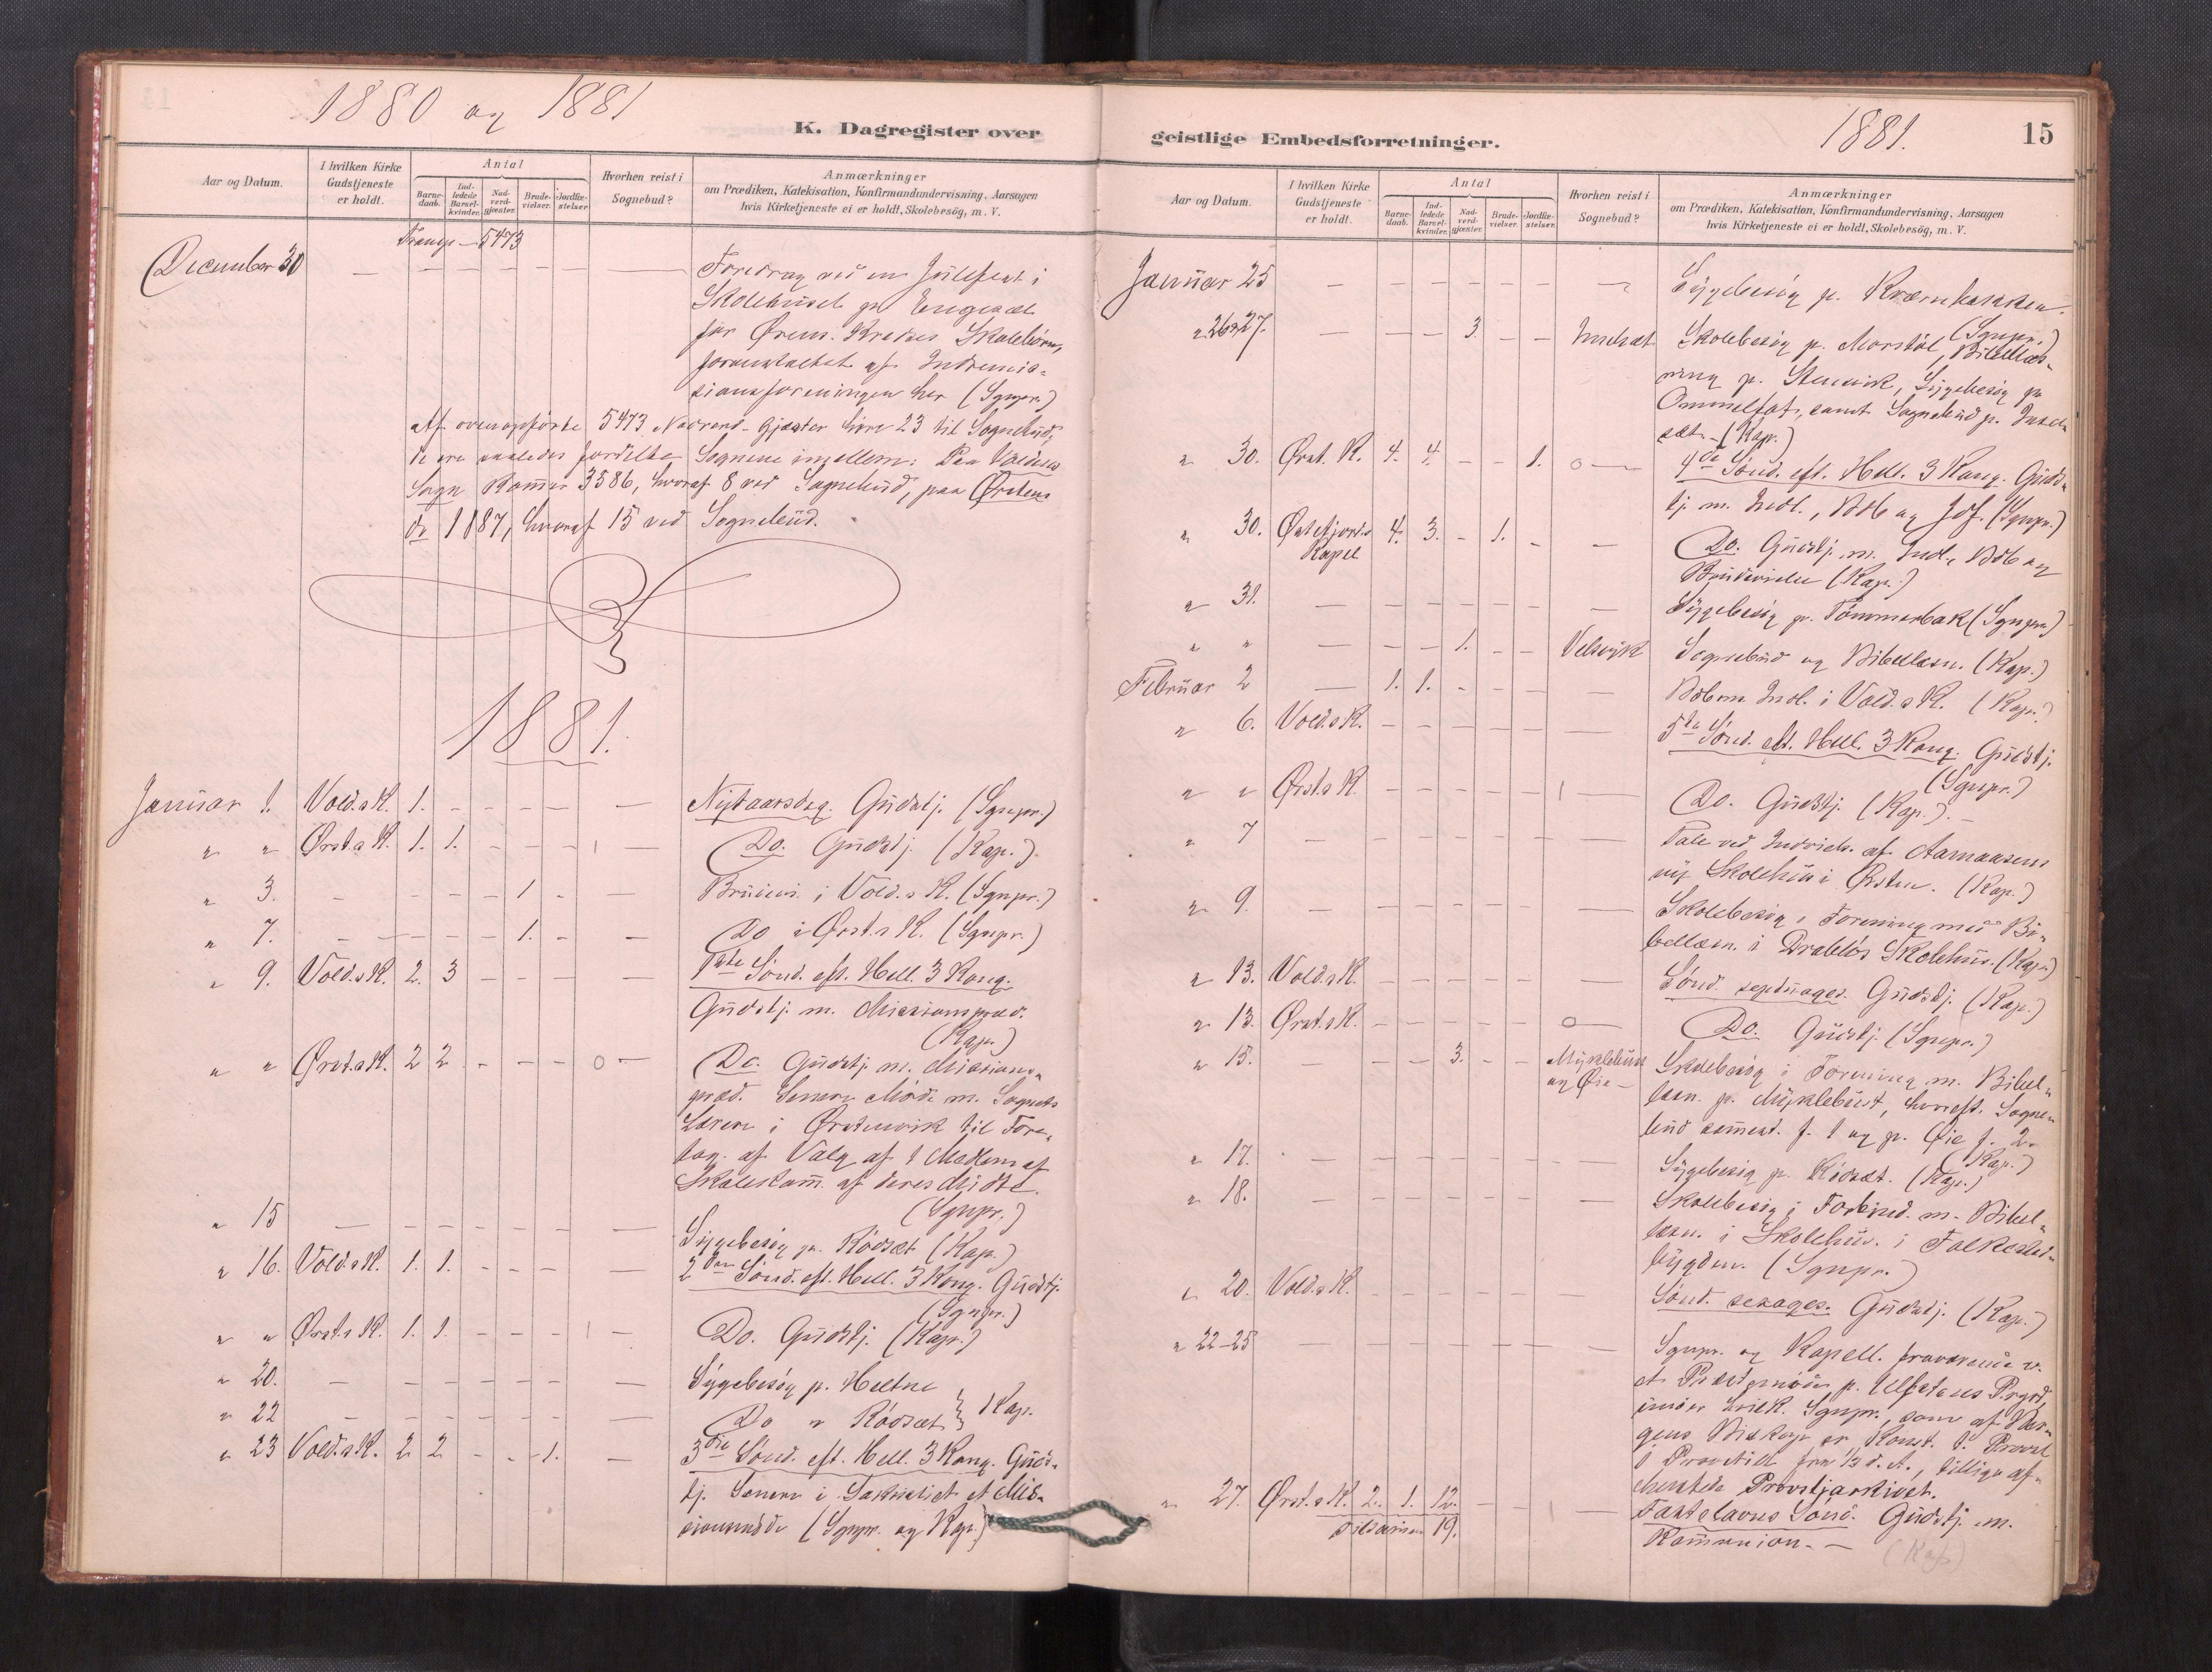 1880 og 1881
K. Dagregister over
Aar og Datum.
I hvilken Kirke Gudstjeneste er holdt.
Antal
Barne-daab.
Ind-ledede Barsel-kvinder.
Nad-verd-gjæster.
Brude-vielser.
Jordfæ-stelser.
Hvorhen reist i Sognebud?
Anmærkninger
om Prædiken, Katekisation, Konfirmandundervisning, Aarsagen
hvis Kirketjeneste ei er holdt, Skolebesög, m. V.
Transp. — 5473
December 30 — — — — — — — Foredrag ved en Julefest i
Skolehuset paa
for Ørsten Kredses Skolebörn,
foranstaltet af Indremis-
sionsforeningen her (Sgnpr.)
Af ovenopförte 5473 Nadverd-Gjæster höre 23 til Sognebud,
de ere saaledes fordelte Sognene imellem: Paa Voldens
Sogn kommer 3586, hvoraf 8 ved Sognebud, paa Ørstens
do 1887, hvoraf 15 ved Sognebud.
1881.
Januar 1. Vold.s K. 1. - - - - — Nytaarsdag. Gudstj. (Sgnpr.)
" " Ørst.s K. 1. 1. - - - — Do. Gudstj. (Kap.)
" 3. - - - - 1 - — Brudevi. i Vold.s K. (Sgnpr.)
" 7. - - - - 1. - — Do i Ørst.s K. (Sgnpr.)
" 9. Vold.s K. 2. 3 - - - — 1ste Sönd. eft. Hell. 3 Kong.
Gudstj. m. Missionspræd.
(Kap.)
" " Ørst.s K. 2 2 - - - 0 — Do. Gudstj. m. Missions-
præd. Senere Möde m. Sognets
Lærere i Ørstenvik til Fore-
tag. af Valg af 1 Medlem af
Skolekomm. af deres Midte.
(Sgnpr.)
" 15 — - - - - - — Sygebesög p. Rödsæt (Kap.)
" 16. Vold.s K. 1. 1. - - - — 2den Sönd. eft. Hell. 3 Kong. Gudstj.
(Sgnpr.)
" " Ørst.s K. 1. 1. - - - — Do. Gudstj. (Kap.)
" 20. — - - - - - — Sygebesög p. Heltne
" 22 — - - - - - — Do " Rödsæt } Kap.
" 23 Vold.s K. 2 2 - - 1. 3die Sönd. eft. Hell. 3 Kong. Guds-
tj. Senere i Sakristiet et Mis-
sionsmöde (Sgnpr. og Kap.)
geistlige Embedsforretninger.
1881.
15
Aar og Datum.
I hvilken Kirke Gudstjeneste er holdt.
Antal
Barne-daab.
Ind-ledede Barsel-kvinder.
Nad-verd-gjæster.
Brude-vielser.
Jordfæ-stelser.
Hvorhen reist i Sognebud?
Anmærkninger
om Prædiken, Katekisation, Konfirmandundervisning, Aarsagen
hvis Kirketjeneste ei er holdt, Skolebesög, m. V.
Januar 25 — - - - - - — Sygebesög p. Kværnbakken.
(Sgnpr.)
" 26 & 27. — - - 3. - - Indsæt Skolebesög p. Morstöl, Bibellæs-
ning p. Stenvik, Sygebesög p.
Ommelfot, samt Sognebud p. Indsel-
sæt. (Kap.)
" 30. Ørst. K. 4. 4. - - 1. 0 — 4de Sönd. eft. Hell. 3 Kong. Guds-
tj. m. Indl., Db og Jdf. (Sgnpr.)
" 30. Østefjords Kapel 4. 3. - 1. - — Do. Gudstj. m. Indl., Db og
Brudevielse (Kap.)
" 31. — - - - - - — Sygebesög p. Tömmerbak (Sgnpr.)
" " — - - 1. - - Velsvik Sognebud og Bibellæsn. (Kap.)
Februar 2 — 1. 1. - - - — Db m. Indl. i Vold.s K. (Kap.)
" 6. Vold.s K. - - - - - — 5te Sönd. eft. Hell. 3 Kong. Gudstj.
(Sgnpr.)
" " Ørst.s K. - - - - - — Do. Gudstj. (Kap.)
" 7 — - - - - - — Tale ved Indvieln. af Aarnaasens
ny Skolehus i Ørsten. (Kap.)
" 9. — - - - - - — Skolebesög i Forening med Bi-
bellæsn. i Drablös Skolehus. (Kap.)
" 13. Vold.s K. - - - - - — Sönd. septuages. Gudstj. (Kap.)
" 13. Ørst.s K. - - - - - 0 — Do. Gudstj. (Sgnpr.)
" 15. — - - 3. - - Myklebust og Øie — Skolebesög i Forening m. Bibel-
læsn. p. Myklebust, hvoreft. Sogne-
bud sammest. f. 1 og p. Øie f. 2.
(Kap.)
" 17. — - - - - - — Sygebesög p. Rödsæt. (Kap.)
" 18. — - - - - - — Skolebesög i Forbind. m. Bibel-
læsn. i Skolehus. i Folkestad-
bygden. (Sgnpr.)
" 20. Vold.s K. - - - - - — Sönd. sexages. Gudstj. (Kap.)
" 22-25 — - - - - - — Sgnpr. og Kapell. fraværende v.
et Præstemöde p. Ulfstens Prgrd,
under hvilk. Sgnpr., som af Ber-
gens Biskop er Konst. t. Provst
i Provstiet fra 1/3 d. A., tillige af-
hentede Provstiarkivet.
" 27. Ørst.s K. 2. 1. 12. - - — Fastelavns Sönd. Gudstj. m.
Tilsammen 19.
Kommunion. — (Kap)